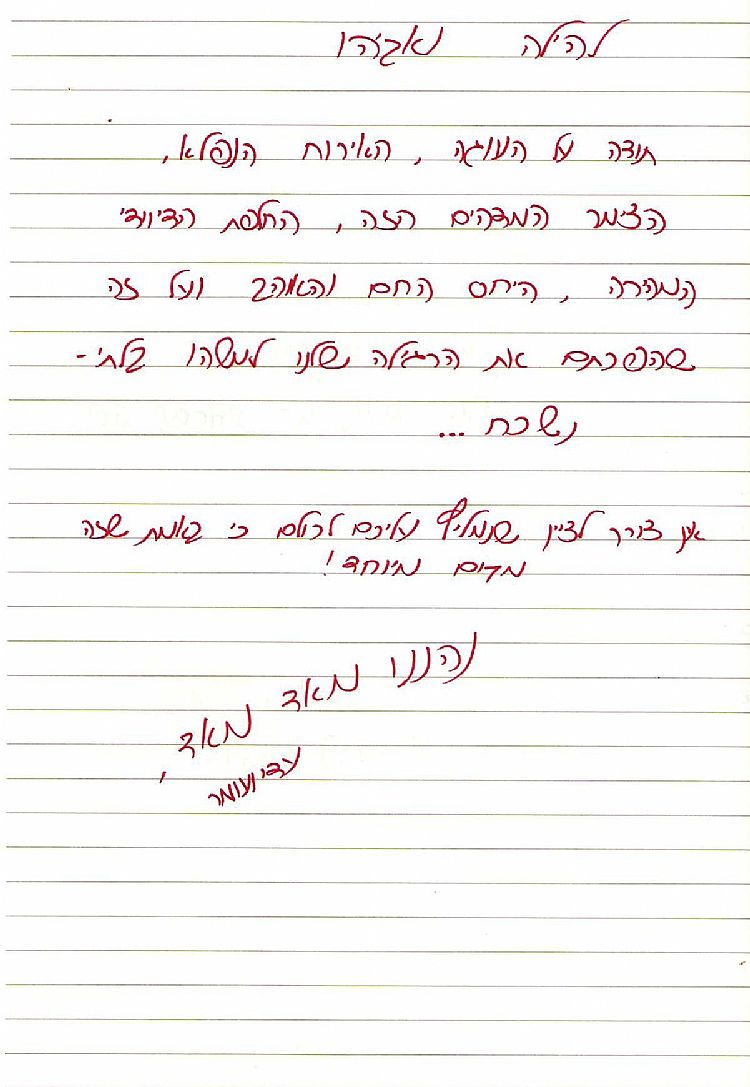 להילה ואביהו
תודה על העוגה, האירוח הנפלא,
הצימר המדהים הזה, החלפת הדיוידי
המהירה, היחס החם והאוהב ועל זה
שהפכתם את הרגילה שלנו למשהו בלתי-
נשכח...
אין צורך לציין שנמליץ עליכם לכולם כי באמת שזה
מקום מיוחד!
נהננו מאד מאד
מאד,
עדי ועומר